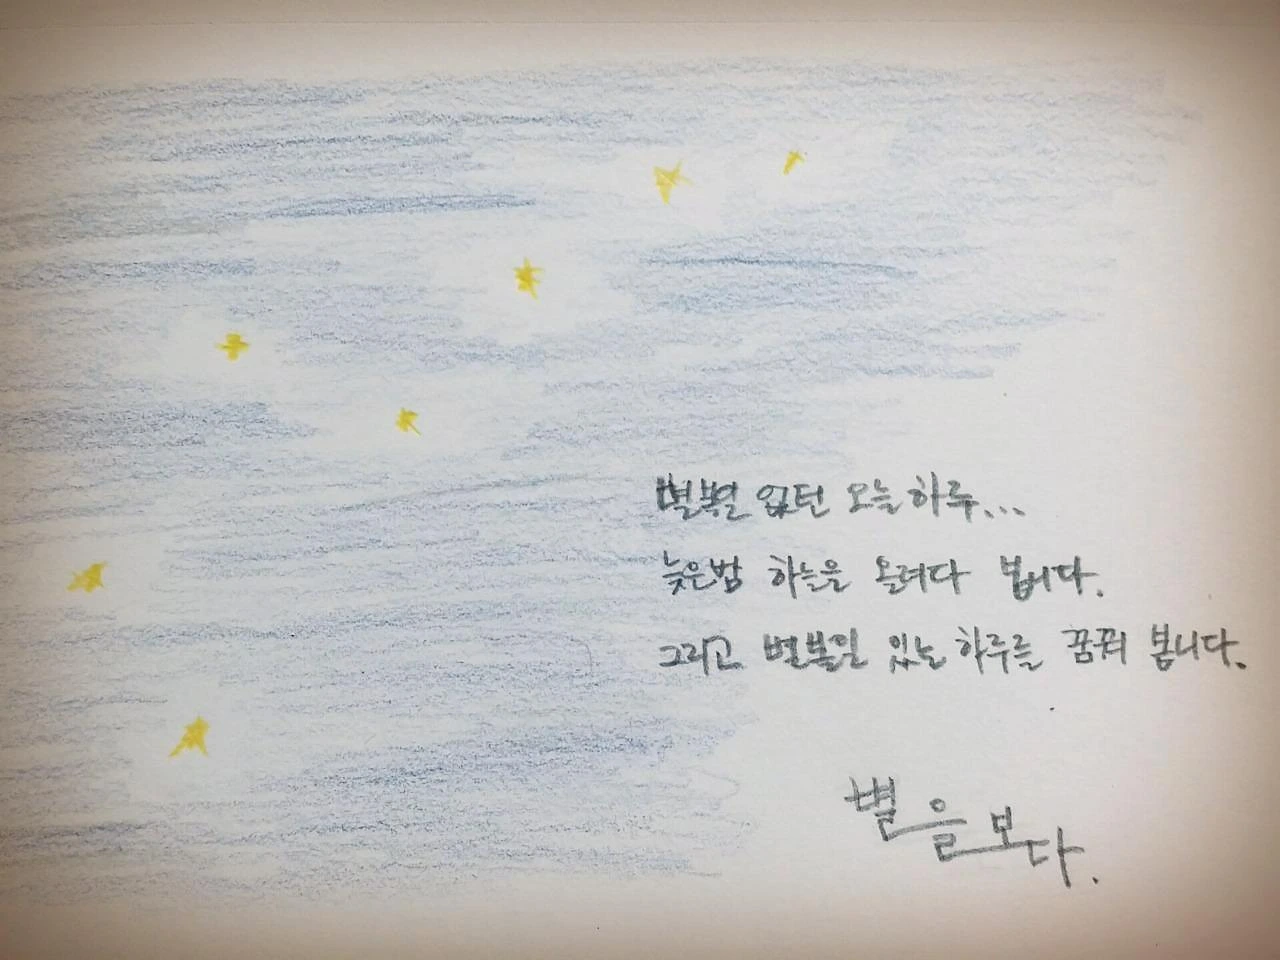 별볼일 없던 오늘하루...
늦은밤 하늘을 올려다 봅니다.
그리고 별볼일 있는 하루를 꿈꿔 봅니다.
별을보다.